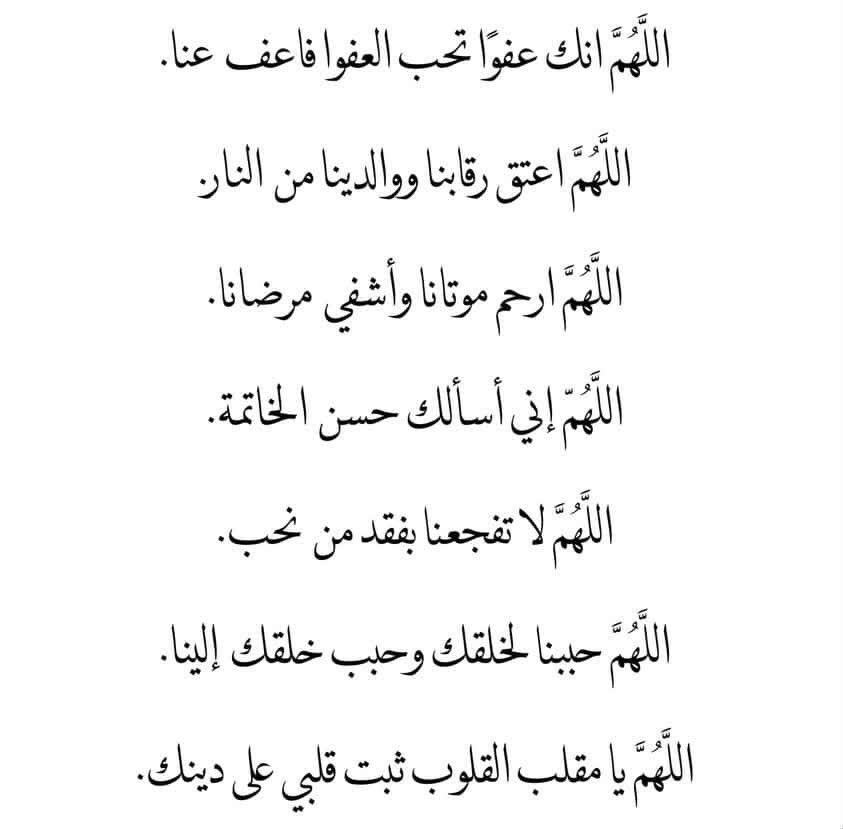 اللَّهُمَّ انك عفوًا تحب العفوا فاعف عنا.
اللَّهُمَّ اعتق رقابنا ووالدينا من النار.
اللَّهُمَّ ارحم موتانا وأشفي مرضانا.
اللَّهُمّ إني أسألك حسن الخاتمة.
اللَّهُمَّ لا تفجعنا بفقد من نحب.
اللَّهُمَّ حببنا لخلقك وحبب خلقك إلينا.
اللَّهُمَّ يا مقلب القلوب ثبت قلبي على دينك.